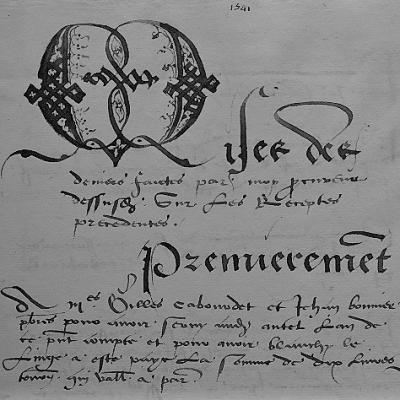 1541
Mises des
deniers faictes par moy procureur
dessusd. Sur les Receptes
precedentes.
Premieremet
A mes Gilles Cabourdet et Jehan bonnier
pbres pour avoir servy aud autel lan de
ce pnt compte et pour avoir blanchy le
linge a este paye la somme de dix livres
vall a par